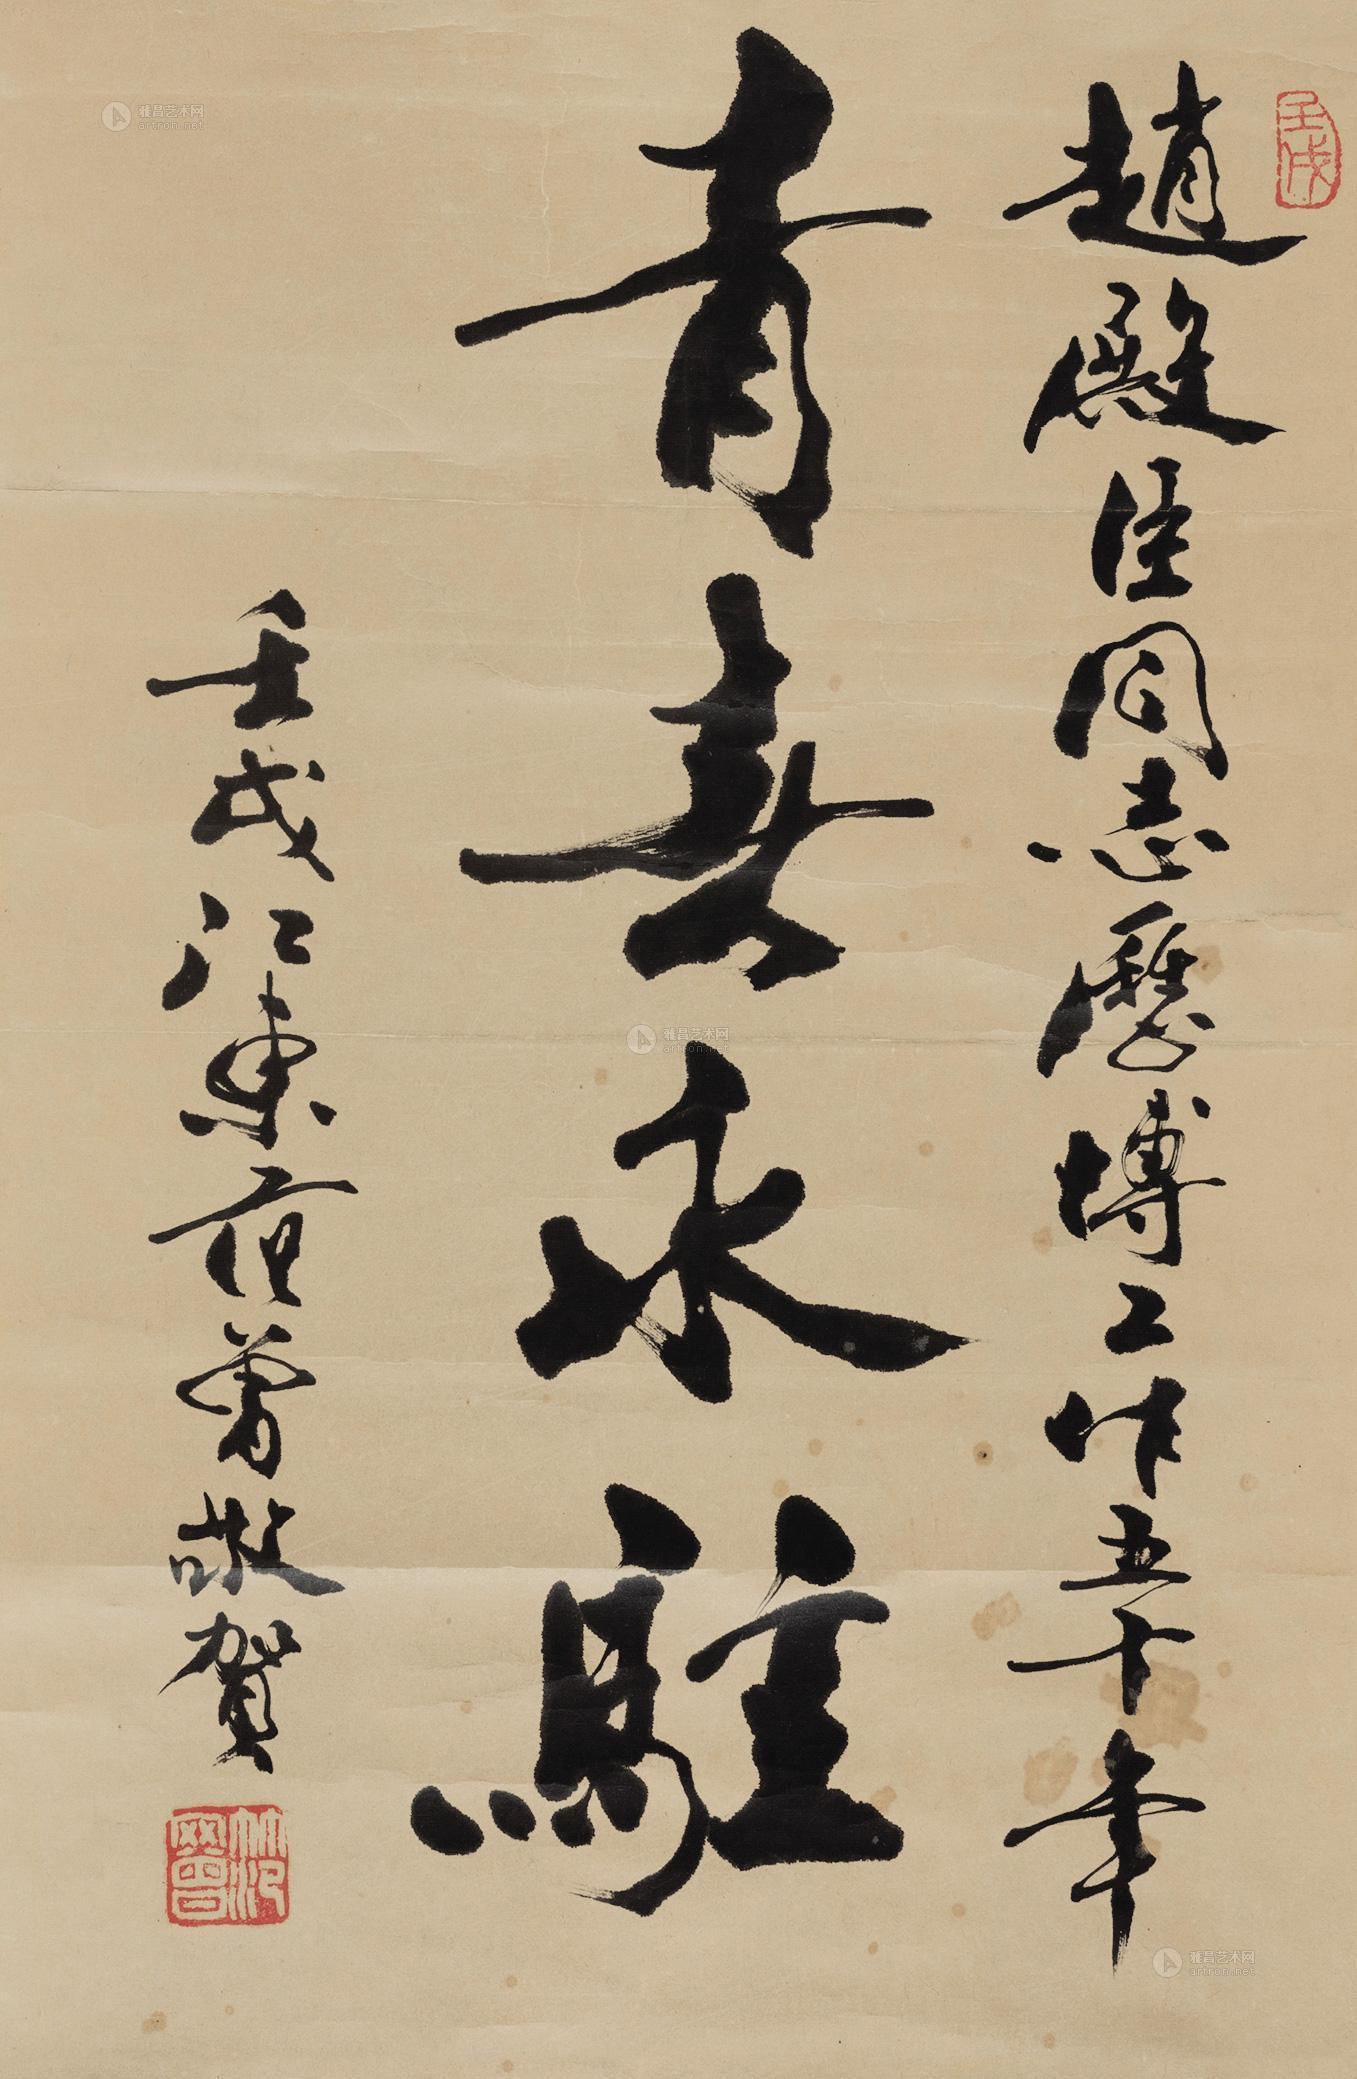 趙殿臣同志歷博工作五十年
青春永駐
壬戌江東范曾敬賀
壬戌
范曾
雅昌艺术网
artron.net
雅昌艺术网
artron.net
雅昌艺术网
artron.net